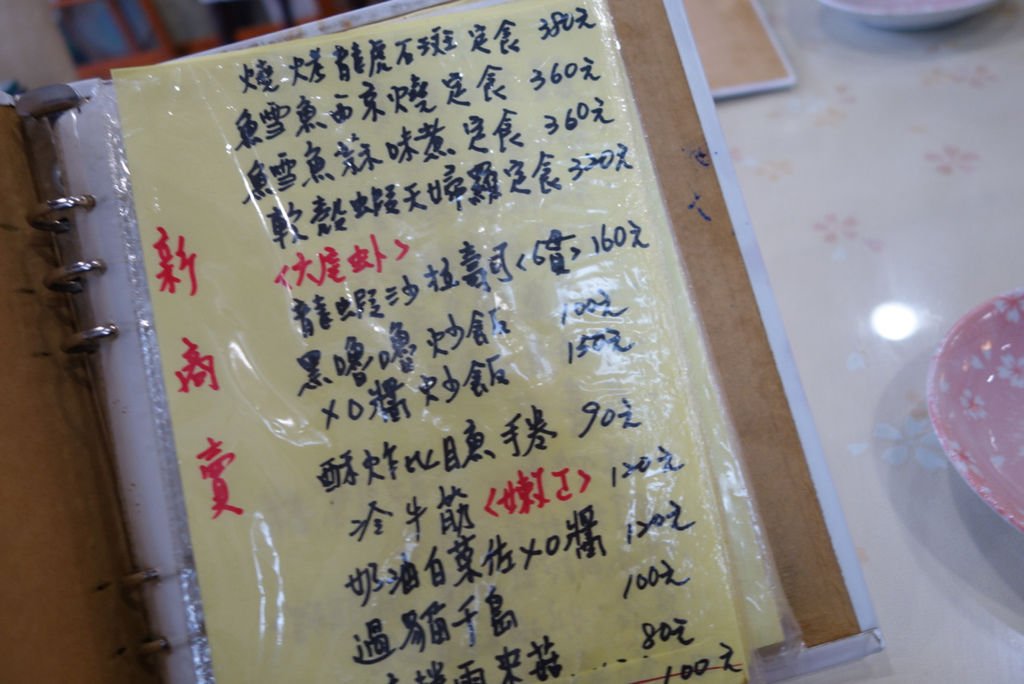 燒烤龍虎石斑定食 380元
鱈魚西京燒定食 360元
鱈魚蒜味煮定食 360元
軟殼蝦天婦羅定食 320元
新商賣
龍蝦沙拉壽司<6貫> 160元
黑嚕嚕炒飯 100元
XO醬炒飯 150元
酥炸比目魚手卷 90元
冷牛筋 120元
奶油白菜佐XO醬 120元
過貓千島 100元
80元
100元